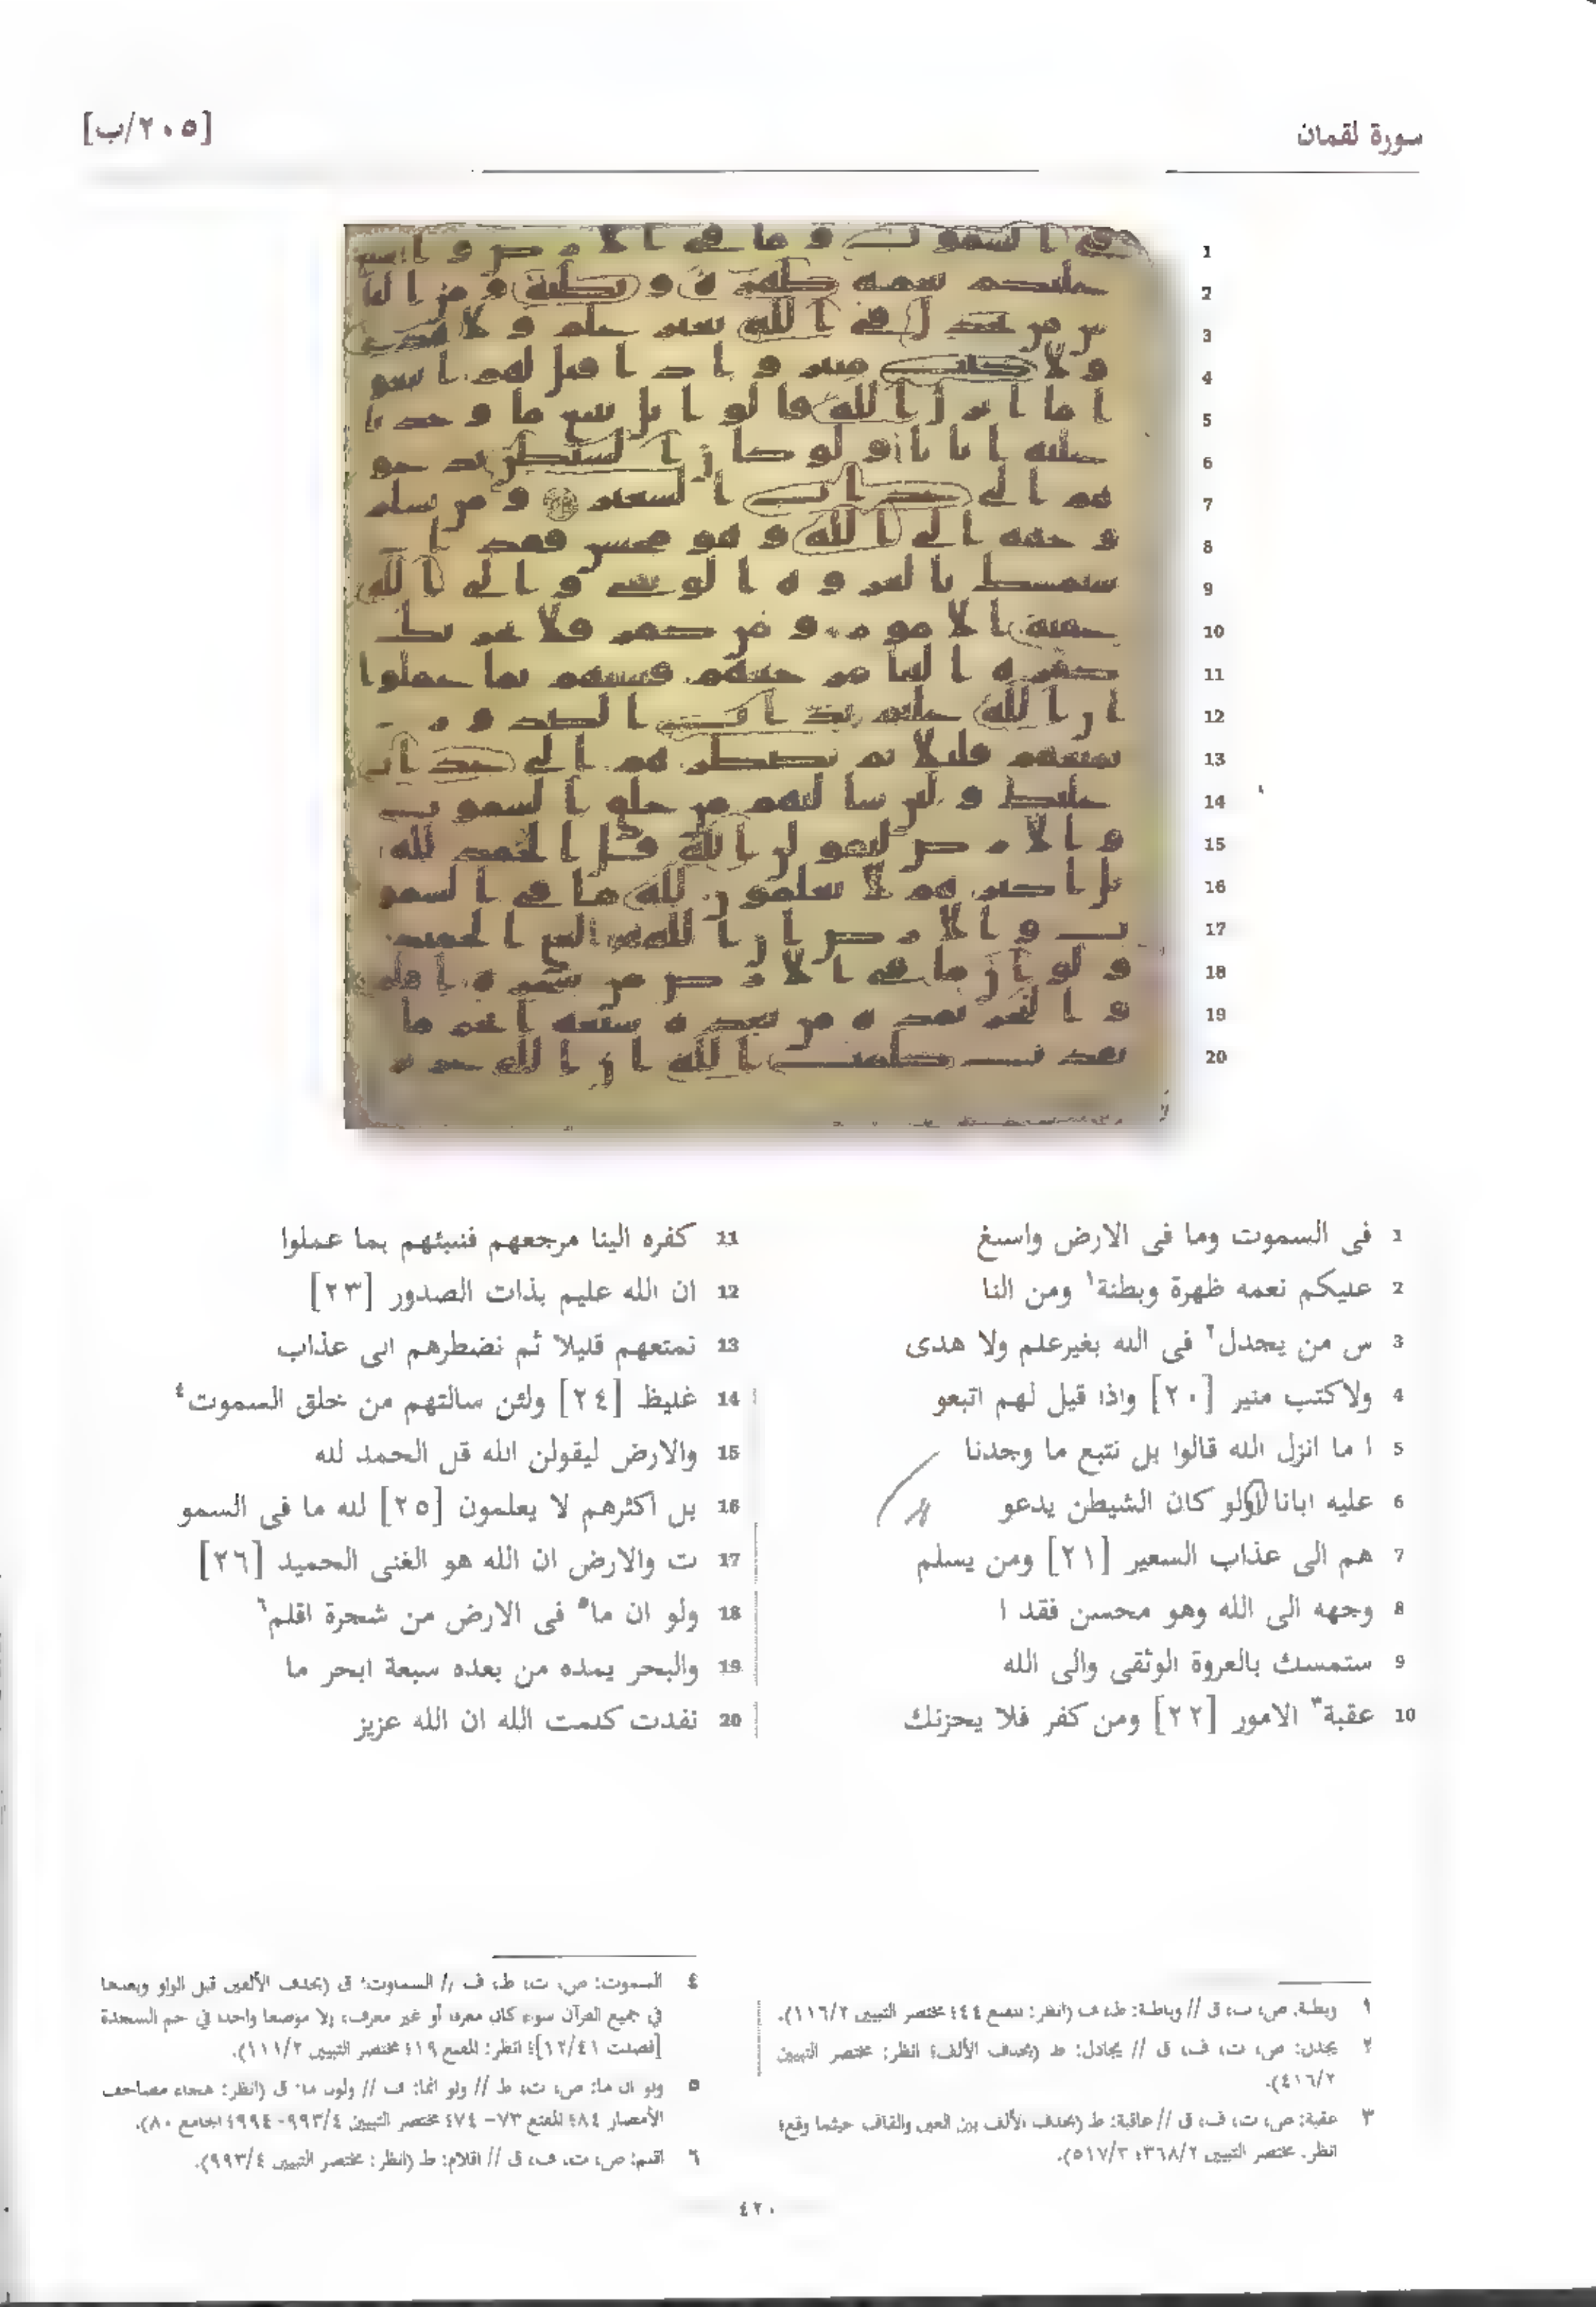 سورة لقمان
[٢٠٥/ب]
1 فى السموت وما فى الارض واسبغ
2 عليكم نعمه ظهرة وبطنة١ ومن النا
3 س من يجدل٢ فى الله بغيرعلم ولا هدى
4 ولاكتب منير [٢٠] واذا قيل لهم اتبعو
5 ا ما انزل الله قالوا بل نتبع ما وجدنا
6 عليه ابانا اولو كان الشيطن يدعو
7 هم الى عذاب السعير [٢١] ومن يسلم
8 وجهه الى الله وهو محسن فقد ا
9 ستمسك بالعروة الوثقى والى الله
10 عقبة٣ الامور [٢٢] ومن كفر فلا يحزنك
11 كفره الينا مرجعهم فننبئهم بما عملوا
12 ان الله عليم بذات الصدور [٢٣]
13 نمتعهم قليلا ثم نضطرهم الى عذاب
14 غليظ [٢٤] ولئن سالتهم من خلق السموت٤
15 والارض ليقولن الله قل الحمد لله
16 بل اكثرهم لا يعلمون [٢٥] لله ما فى السمو
17 ت والارض ان الله هو الغنى الحميد [٢٦]
18 ولو ان ما٥ فى الارض من شجرة اقلم٦
19 والبحر يمده من بعده سبعة ابحر ما
20 نفدت كلمت الله ان الله عزيز
١ وبطنة: ص، ت، ق // وباطنة: ط، ف (انظر: المقنع ٤٤؛ مختصر التبيين ١١٦/٢).
٢ يجدل: ص، ت، ف، ق // يجادل: ط (بحذف الألف؛ انظر: مختصر التبيين
٤١٦/٢).
٣ عقبة: ص، ت، ف، ق // عاقبة: ط (بحذف الألف بين العين والقاف حيثما وقع؛
انظر: مختصر التبيين ٣٦٨/٢؛ ٥١٧/٣).
٤ السموت: ص، ت، ط، ف // السماوت: ق (بحذف الألفين قبل الواو وبعدها
في جميع القرآن سواء كان معرفا أو غير معرف، إلا موضعا واحدا في حم السجدة
[فصلت ١٢/٤١]؛ انظر: المقنع ١٩؛ مختصر التبيين ١١١/٢).
٥ ولو ان ما: ص، ت، ط // ولو انما: ف // ولون ما: ق (انظر: هجاء مصاحف
الأمصار ٨٤؛ المقنع ٧٣-٧٤؛ مختصر التبيين ٩٩٣/٤-٩٩٤؛ الجامع ٨٠).
٦ اقلم: ص، ت، ف، ق // اقلام: ط (انظر: مختصر التبيين ٩٩٣/٤).
٤٢٠